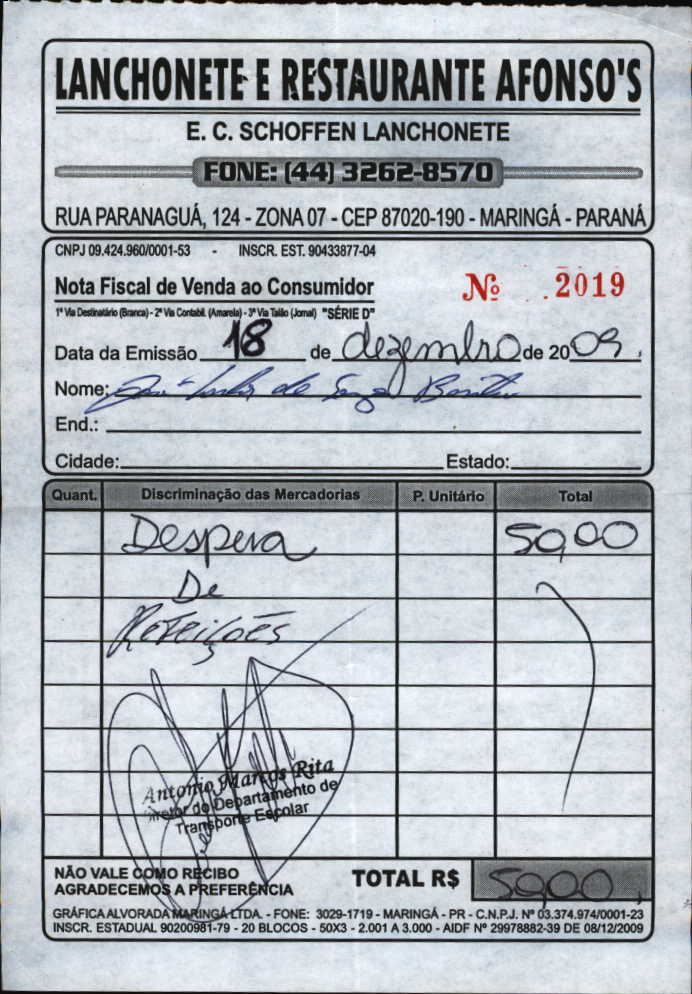 LANCHONETE E RESTAURANTE AFONSO'S
E. C. SCHOFFEN LANCHONETE
FONE: (44) 3262-8570
RUA PARANAGUÁ, 124 - ZONA 07 - CEP 87020-190 - MARINGÁ - PARANÁ
CNPJ 09.424.960/0001-53 - INSCR. EST. 90433877-04
Nota Fiscal de Venda ao Consumidor Nº 2019
1ª Via Destinatário (Branca) - 2ª Via Contabil. (Amarela) - 3ª Via Talão (Jornal) "SÉRIE D"
Data da Emissão 18 de dezembro de 2009.
Nome: de Souza
End.:
Cidade: Estado:
Quant. Discriminação das Mercadorias P. Unitário Total
Despesa 50,00
De
Refeições
Antonio Marcos Rita
Diretor do Departamento de
Transporte Escolar
NÃO VALE COMO RECIBO TOTAL R$ 50,00
AGRADECEMOS A PREFERÊNCIA
GRÁFICA ALVORADA MARINGÁ LTDA. - FONE: 3029-1719 - MARINGÁ - PR - C.N.P.J. Nº 03.374.974/0001-23
INSCR. ESTADUAL 90200981-79 - 20 BLOCOS - 50X3 - 2.001 A 3.000 - AIDF Nº 29978882-39 DE 08/12/2009